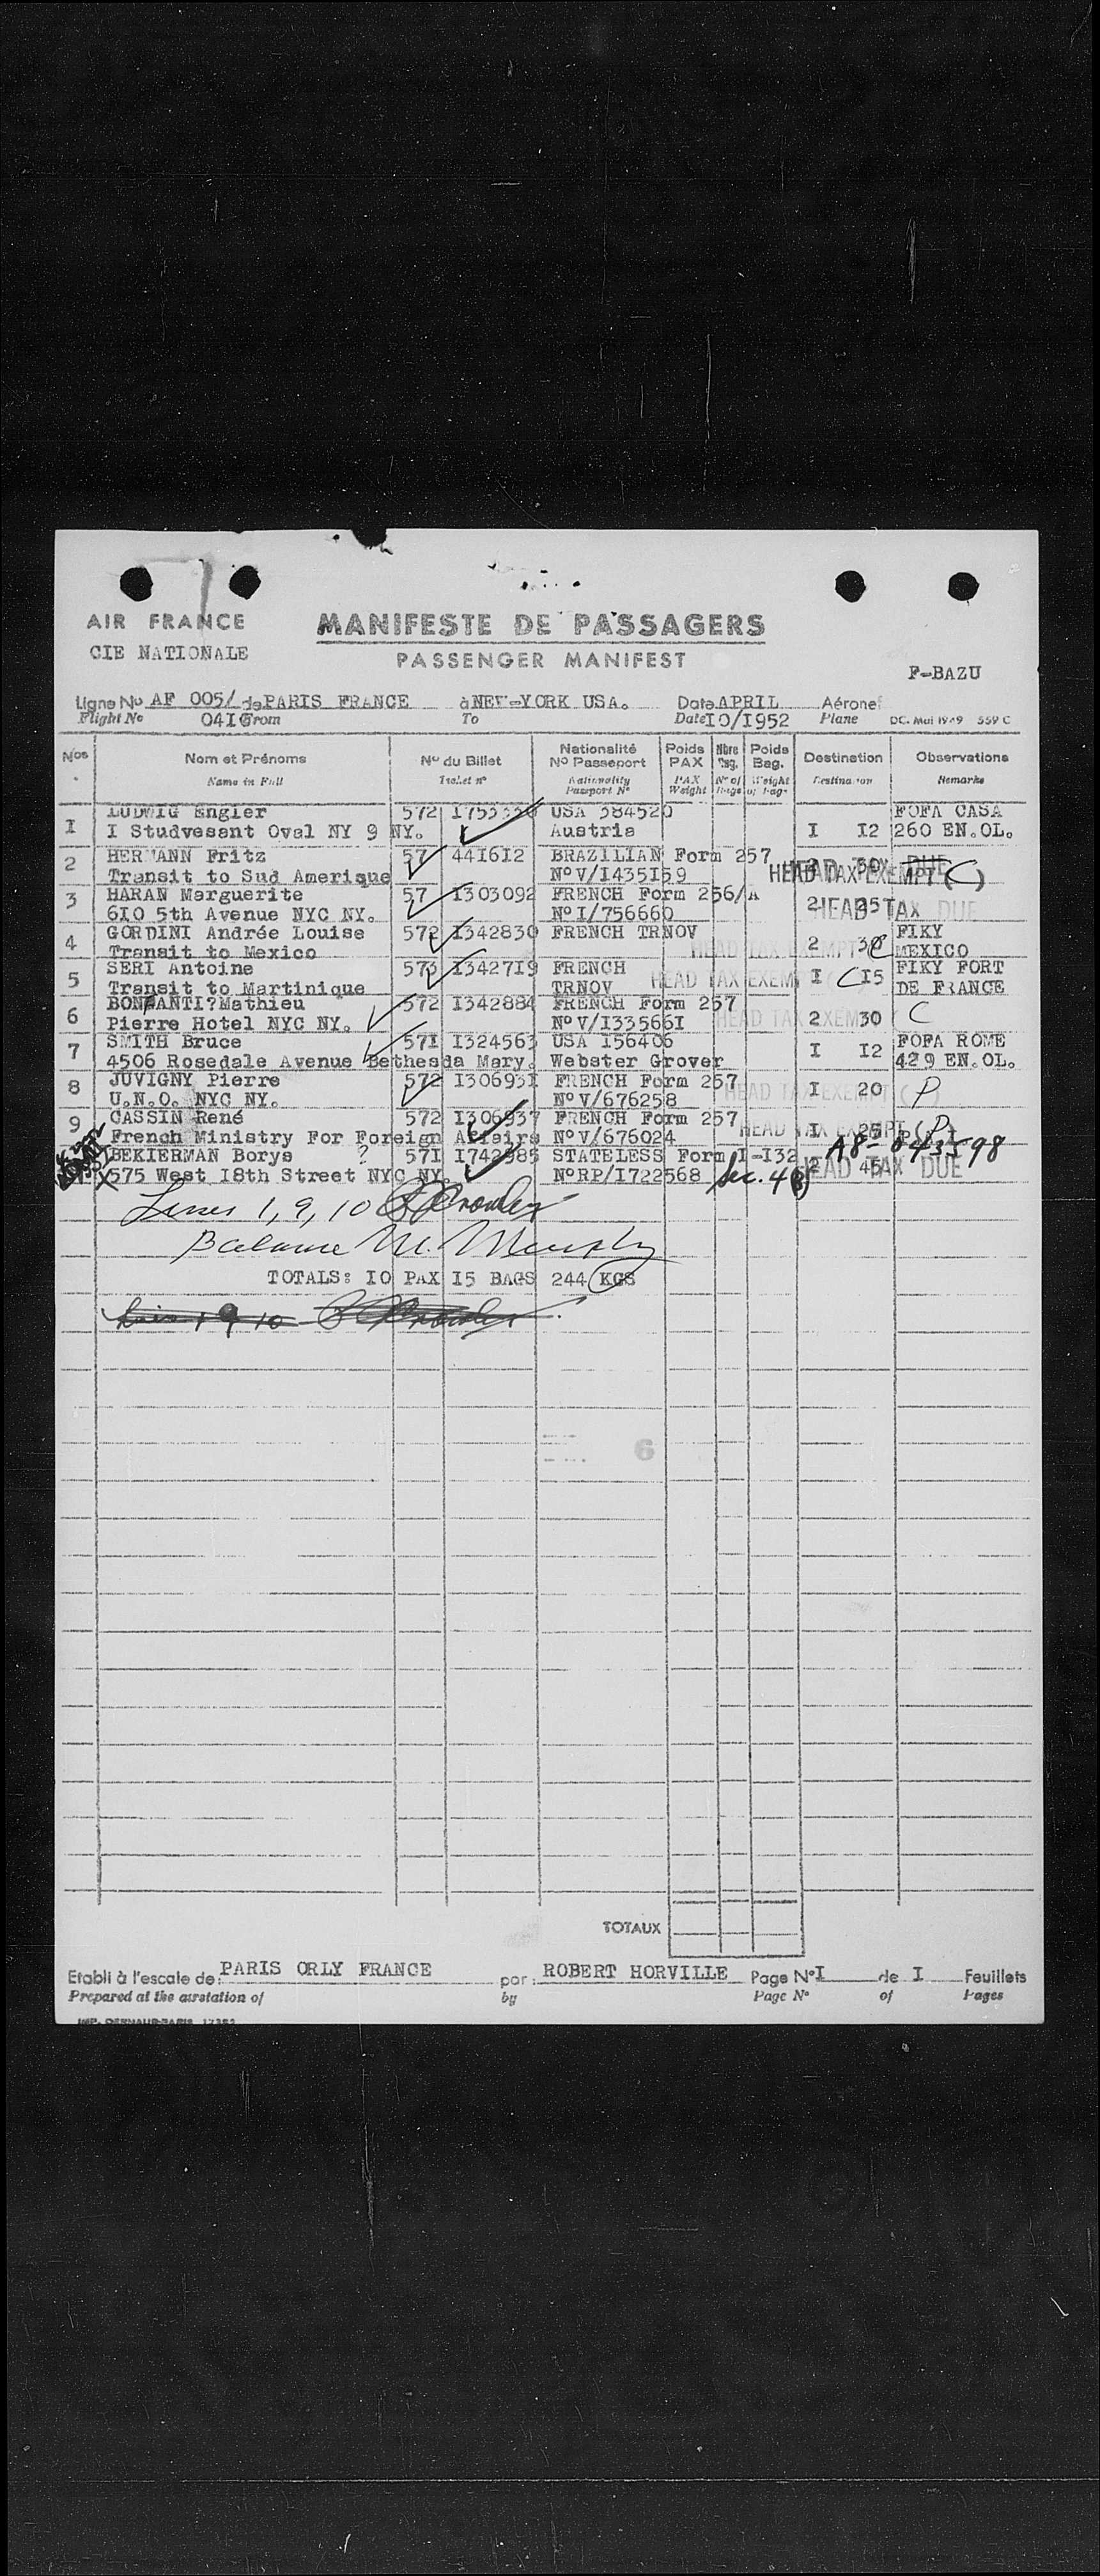 AIR FRANCE
CIE NATIONALE
MANIFESTE DE PASSAGERS
PASSENGER MANIFEST
F-BAZU
Ligne No AF 005/ de PARIS FRANCE à NEW-YORK USA. Date APRIL Aéronef
Flight No 0410 From To Date 10/1952 Plane DC. Mai 1949 559 C
Nos Nom et Prénoms No du Billet Nationalité No Passeport Poids PAX Nbre Bag. Poids Bag. Destination Observations
Name in Full Ticket no Nationality Passport No PAX Weight No of Bags Weight of bags Destination Remarks
1 LUDWIG Engler 572 1753330 USA 384520 FOFA CASA
I Studvesant Oval NY 9 NY. Austria I I2 260 EN.OL.
2 HERMANN Fritz 57 441612 BRAZILIAN Form 257
Transit to Sud Amerique No V/1435159 HEAD TAX EXEMPT (C)
3 HARAN Marguerite 57 I303092 FRENCH Form 256/A
610 5th Avenue NYC NY. No I/756660 2 25 HEAD TAX DUE
4 GORDINI Andrée Louise 572 I342830 FRENCH TRNOV FIKY
Transit to Mexico HEAD TAX EXEMPT 2 30 C MEXICO
5 SERI Antoine 573 I342719 FRENCH FIKY FORT
Transit to Martinique TRNOV HEAD TAX EXEMPT I C I5 DE FRANCE
6 BONFANTI?Mathieu 572 I342884 FRENCH Form 257
Pierre Hotel NYC NY. No V/I33566I HEAD TAX EXEMPT 2 30 C
7 SMITH Bruce 57I I324563 USA I56406 FOFA ROME
4506 Rosedale Avenue Bethesda Mary. Webster Grover I I2 429 EN.OL.
8 JUVIGNY Pierre 572 I30693I FRENCH Form 257
U.N.O. NYC NY. No V/676258 HEAD TAX EXEMPT ( ) I 20 P
9 CASSIN René 572 I306937 FRENCH Form 257
French Ministry For Foreign Affairs No V/676024 HEAD TAX EXEMPT (P) I 25
BEKIERMAN Borys ? 57I I742985 STATELESS Form I-I32 A8-043598
X 575 West I8th Street NYC NY. No RP/I722568 Sec. 4(B) 2 45 HEAD TAX DUE
Lines 1, 9, 10
Balance M. Murphy
TOTALS: IO PAX I5 BAGS 244 KGS
Lines 1 9 10
6
TOTAUX
Etabli à l'escale de: PARIS ORLY FRANCE par: ROBERT HORVILLE Page No I de I Feuillets
Prepared at the airstation of by Page No of Pages